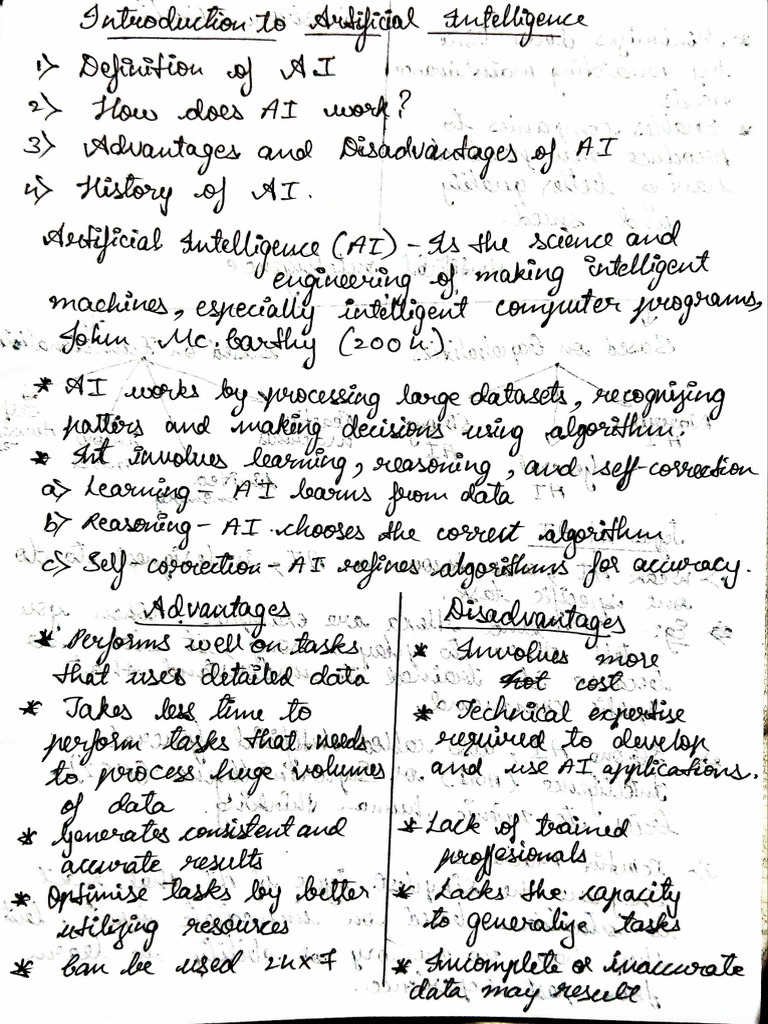 Introduction to Artificial Intelligence
1) Definition of AI
2) How does AI work?
3) Advantages and Disadvantages of AI
4) History of AI.
Artificial Intelligence (AI) - Is the science and
engineering of making intelligent
machines, especially intelligent computer programs,
John Mc.Carthy (2004)
* AI works by processing large datasets, recognizing
patters and making decisions using algorithm.
* Int involves learning, reasoning, and self-correction
a) Learning - AI learns from data
b) Reasoning - AI chooses the correct algorithm
c) Self-correction - AI refines algorithms for accuracy.
Advantages
* Performs well on tasks
that uses detailed data
* Takes less time to
perform tasks that needs
to process huge volumes
of data
* Generates consistent and
accurate results
* Optimise tasks by better
utilizing resources
* Can be used 24x7
Disadvantages
* Involves more
cost
* Technical expertise
required to develop
and use AI applications.
* Lack of trained
proffesionals
* Lacks the capacity
to generalize tasks
* Incomplete or inaccurate
data may result